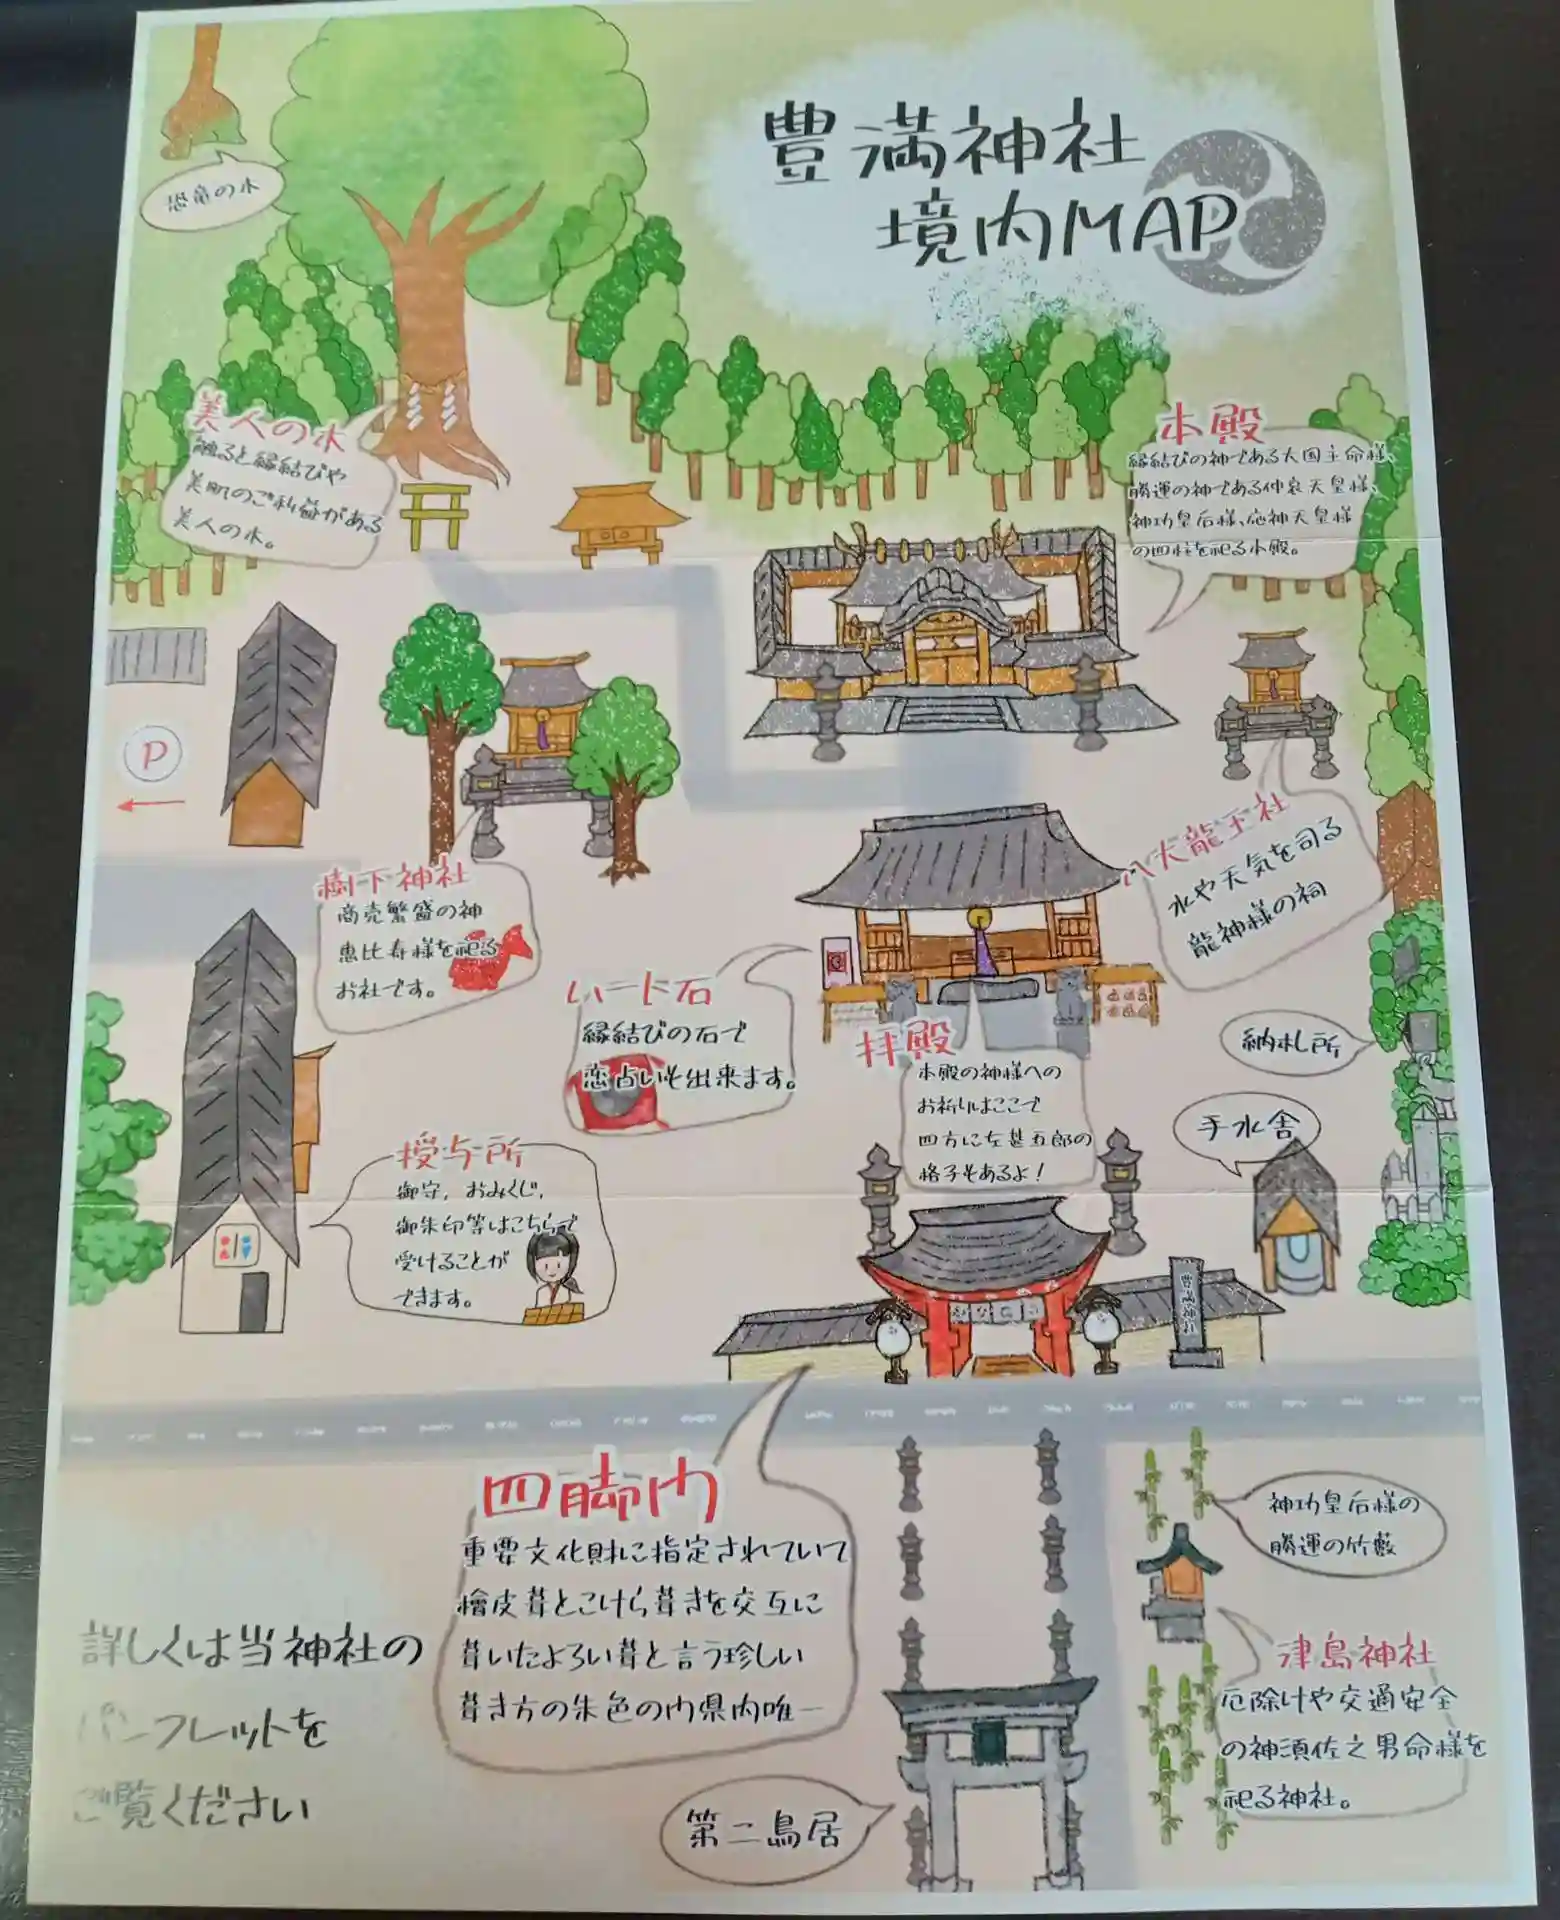 豊満神社
境内MAP
恐竜の木
美人の木
触ると縁結びや
美肌のご利益がある
美人の木。
本殿
縁結びの神である大国主命様、
勝運の神である仲哀天皇様、
神功皇后様、応神天皇様
の四柱を祀る本殿。
P
樹下神社
商売繁盛の神
恵比寿様を祀る
お社です。
八大龍王社
水や天気を司る
龍神様の祠
ハート石
縁結びの石で
恋占いも出来ます。
拝殿
本殿の神様への
お祈りはここで
四方に左甚五郎の
格子もあるよ!
納札所
手水舎
授与所
御守、おみくじ、
御朱印等はこちらで
受けることが
できます。
豊満神社
四脚門
重要文化財に指定されていて
檜皮葺とこけら葺きを交互に
葺いたよろい葺と言う珍しい
葺き方の朱色の門県内唯一
神功皇后様の
勝運の竹藪
津島神社
厄除けや交通安全
の神須佐之男命様を
祀る神社。
第二鳥居
詳しくは当神社の
パンフレットを
ご覧ください